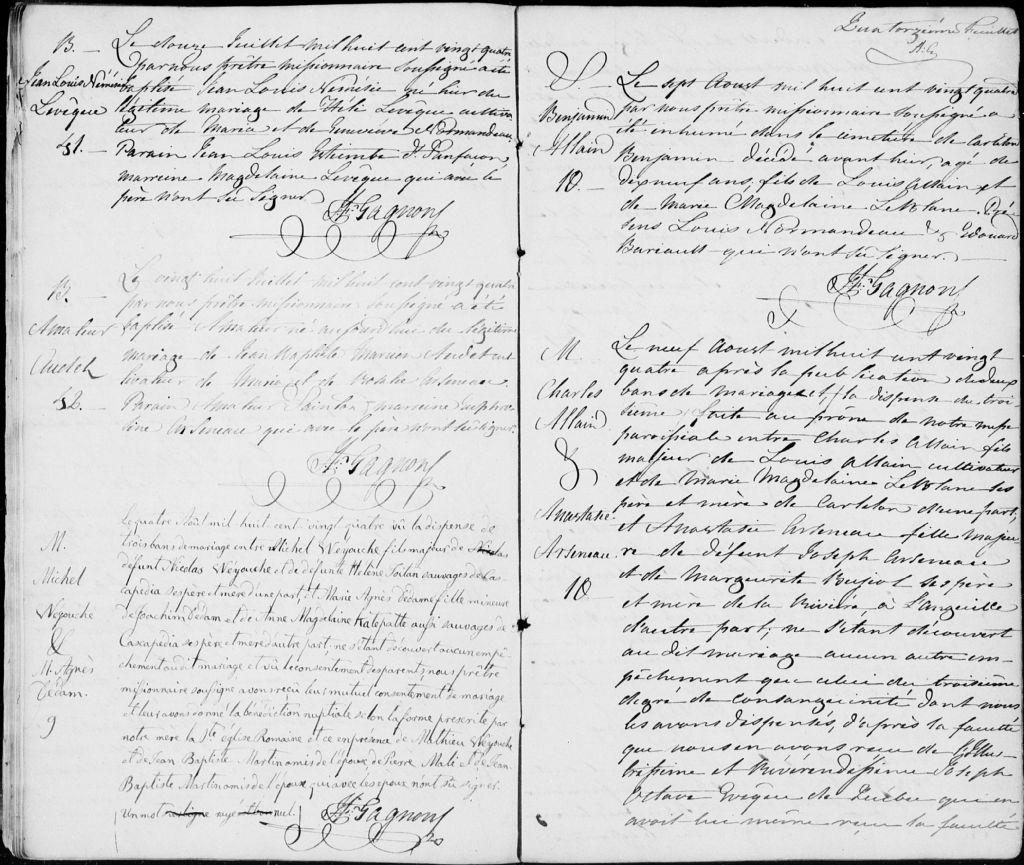 B. —
Jean Louis Némésie
Levêque
51. —
Le douze Juillet mil huit cent vingt quatre
par nous prêtre missionnaire soussigné a été
baptisé Jean Louis Némésie né hier du
légitime mariage de Levêque cultiva-
teur de Maria et de Genevieve Normandeau
Parain Jean Louis
marreine Magdelaine Leveque qui avec le
père n'ont su signer
Gagnon
B. —
Amateur
Audet
52. —
Le vingt huit Juillet mil huit cent vingt quatre
par nous prêtre missionnaire soussigné a été
baptisé Amateur né aujourd'hui du légitime
mariage de Jean Baptiste Audet cul-
tivateur de Maria et de Rosalie Arseneau
Parain Amateur & marreine Euphro-
sine Arseneau qui avec le père n'ont su signer.
Gagnon
M.
Michel
Weyouche
&
M. Agnès
Dédam.
9
Le quatre Aoüt mil huit cent vingt quatre vû la dispense de
trois bans de mariage entre Michel Weyouche fils majeur de Nicolas
défunt Nicolas Weyouche et de défunte Helène sauvages de Cas-
capédia ses pere et mere d'une part; et Marie Agnès Dédam fille mineure
de Joachim Dédam et de Anne Magdelaine aussi sauvages de
Cascapedia ses père et mere d'autre part, ne s'étant découvert aucun empê-
chement au dit mariage et vû le consentement des parents; nous prêtre
missionnaire soussigné avons reçu leur mutuel consentement de mariage
et leur avons donné la bénédiction nuptiale selon la forme prescrite par
notre mère la Ste. église Romaine et ce en presence de Mathieu Weyouche
et de Jean Baptiste Martin amis de l'époux de Pierre et de Jean
Baptiste Martin amis de l'époux, qui avec les époux n'ont su signer.
Un mot raye nul.
Gagnon
Quatorzième Feuillet
S.
Benjamin
Allain
10. —
Le sept Aoust mil huit cent vingt quatre
par nous prêtre missionnaire soussigné a
été inhumé dans le cimetière de Carleton
Benjamin décédé avant hier, agé de
dix neuf ans, fils de Louis Allain et
de Marie Magdelaine LeBlanc. Pré-
sens Louis Normandeau & Edouard
Bariault qui n'ont su signer.
Gagnon
M.
Charles
Allain
&
Anastasie
Arseneau
10
Le neuf Aoust mil huit cent vingt
quatre après la publication de deux
bans de mariage et la dispense du troi-
sième, faite au prône de notre messe
paroissiale entre Charles Allain fils
majeur de Louis Allain cultivateur
et de Marie Magdelaine LeBlanc ses
père et mère de Carleton d'une part;
et Anastasie Arseneau fille majeu-
re de défunt Joseph Arseneau
et de Marguerite Bujeol ses père
et mère de la Rivière à L'anguille
d'autre part; ne s'étant découvert
au dit mariage aucun autre em-
pêchement que celui du troisième
degré de consanguinité dont nous
les avons dispensés, d'après la faculté
que nous en avons reçu de l'Illus-
trissime et Révérendissime Joseph
Octave Evêque de Quebec qui en
avoit lui même reçu la faculté